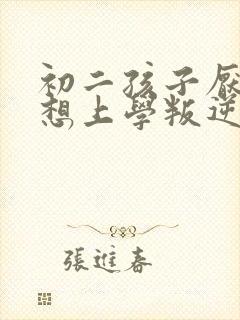 初二孩子厭
想上學叛逆
張進春